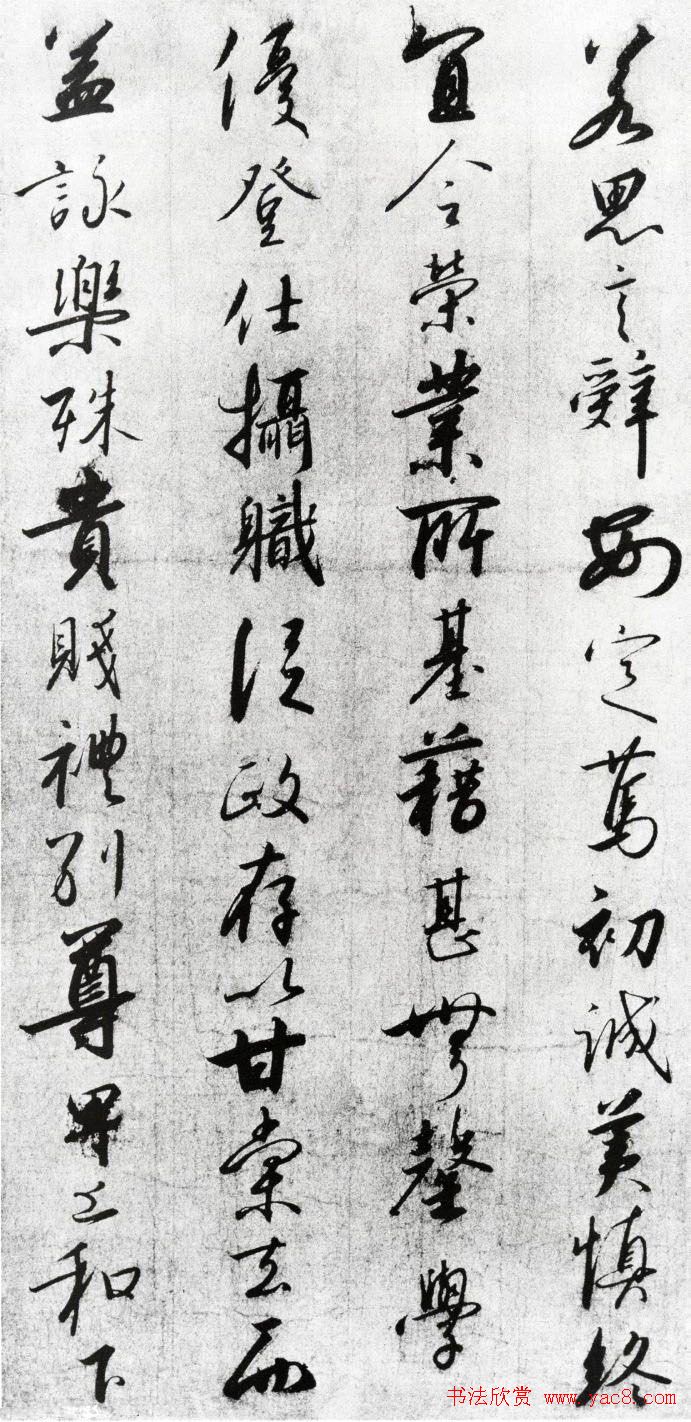 若思言辭安定篤初誠美慎終
宜令榮業所基藉甚無罄學
優登仕攝職從政存以甘棠去而
益詠樂殊貴賤禮別尊卑上和下
书法欣赏 www.yac8.com